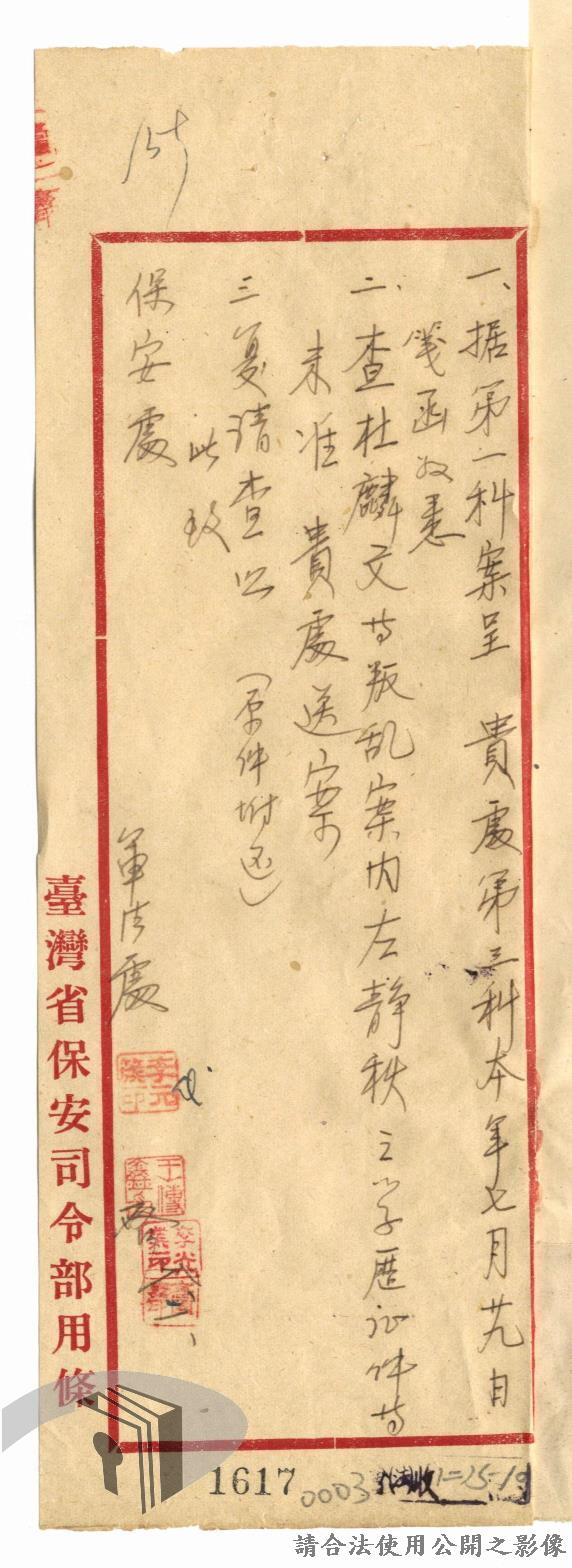 一、据第一科案呈 貴處第三科本年七月廿九日
箋函敬悉
二、查杜麟文等叛乱案内左静秩之学歷证件等
未准 貴處送案
三、复請查照 (原件附还)
此致
保安處
軍法處
李元簇印
臺灣省保安司令部用條
1617
0003
請合法使用公開之影像